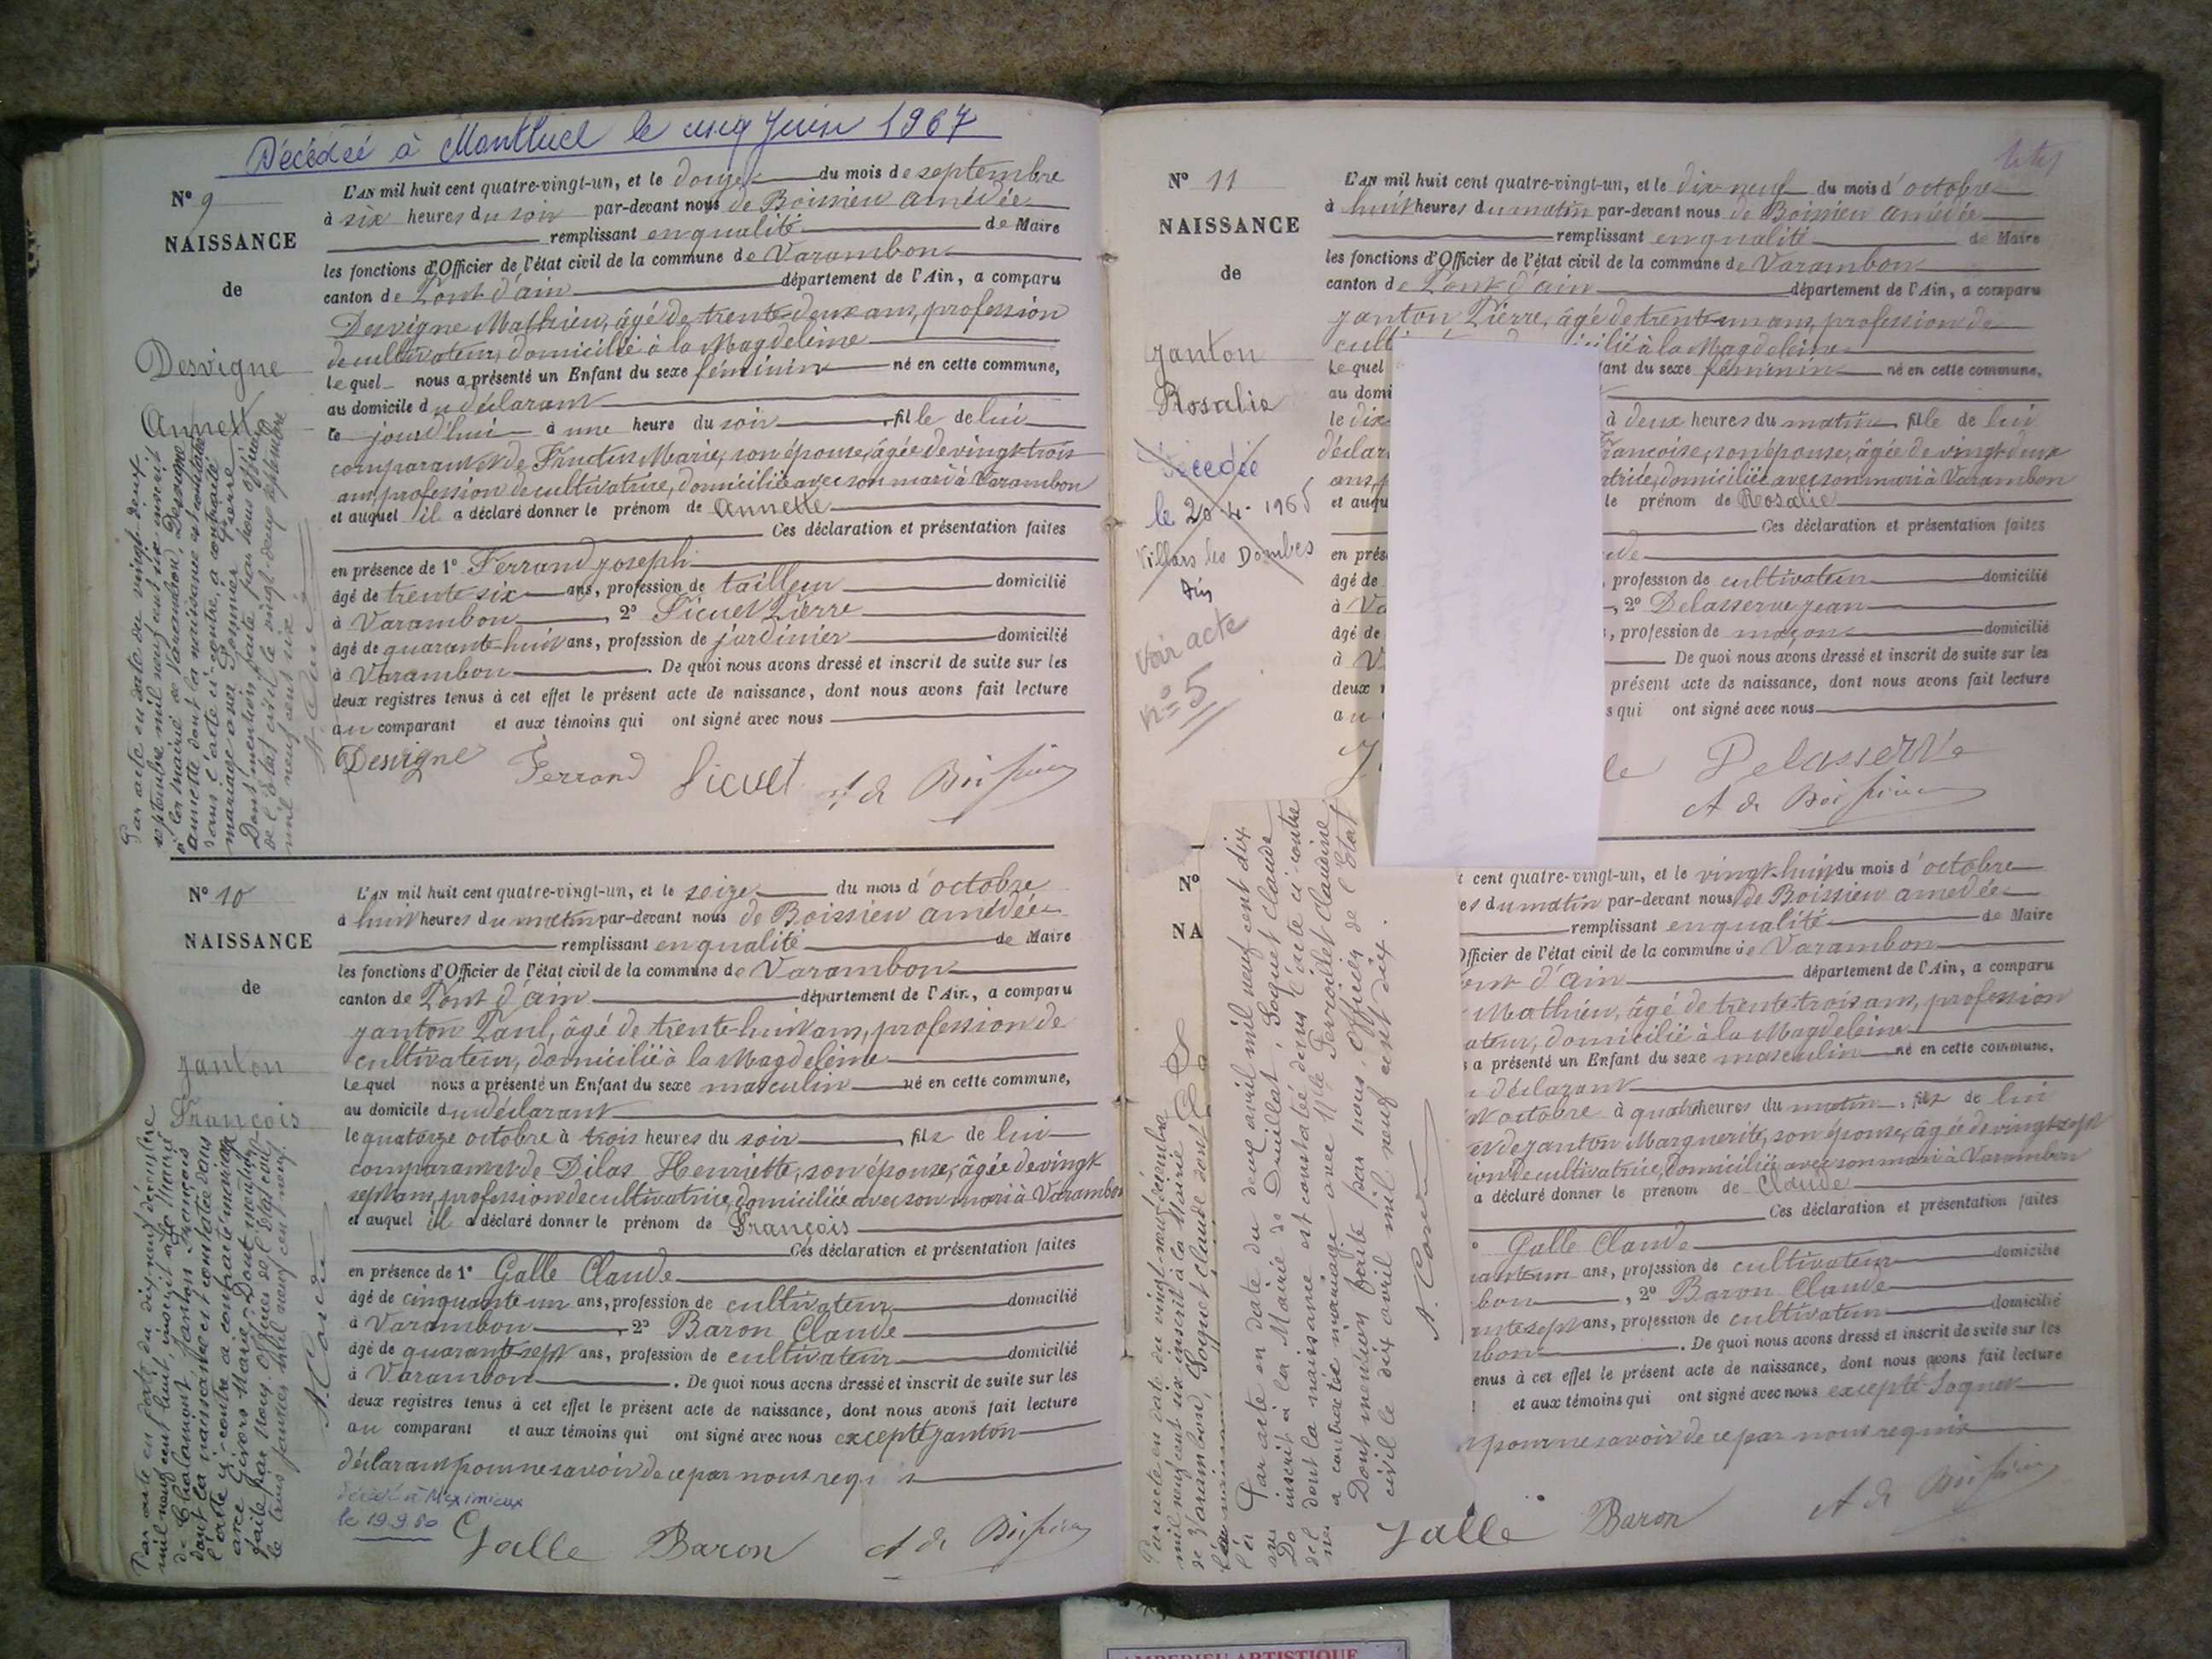 Décédée à Montluel le cinq Juin 1967
N° 9
NAISSANCE
de
Desvigne
Annette
L'AN mil huit cent quatre-vingt-un, et le douze du mois de septembre
à six heures du soir par-devant nous de Boissieu amédée
remplissant en qualité de Maire
les fonctions d'Officier de l'état civil de la commune de Varambon
canton de Pont d'ain département de l'Ain, a comparu
Desvigne Mathieu, âgé de trente-deux ans, profession
de cultivateur, domicilié à la Magdeleine
lequel nous a présenté un Enfant du sexe féminin né en cette commune,
au domicile du déclarant
ce jourd'hui à une heure du soir, fille de lui
comparant et de Marie, son épouse, âgée de vingt-trois
ans, profession de cultivatrice, domiciliée avec son mari à Varambon
et auquel il a déclaré donner le prénom de Annette
Ces déclaration et présentation faites
en présence de 1° Ferrand joseph
âgé de trente six ans, profession de tailleur domicilié
à Varambon, 2° Sicuet Pierre
âgé de quarante-huit ans, profession de jardinier domicilié
à Varambon. De quoi nous avons dressé et inscrit de suite sur les
deux registres tenus à cet effet le présent acte de naissance, dont nous avons fait lecture
au comparant et aux témoins qui ont signé avec nous
Desvigne Ferrand Sicuet A de Boissieu
Par acte en date du vingt-deux
septembre mil neuf cent six inscrit
à la mairie de Varambon, Desvigne
annette dont la naissance est constatée
dans l'acte ci-contre, a contracté
mariage avec Pierre
Dont mention faite par nous officier
de l'état civil le vingt-deux septembre
mil neuf cent six
N° 10
NAISSANCE
de
janton
François
L'AN mil huit cent quatre-vingt-un, et le seize du mois d'octobre
à huit heures du matin par-devant nous de Boissieu amédée
remplissant en qualité de Maire
les fonctions d'Officier de l'état civil de la commune de Varambon
canton de Pont d'ain département de l'Ain, a comparu
janton Paul, âgé de trente-huit ans, profession de
cultivateur, domicilié à la Magdeleine
lequel nous a présenté un Enfant du sexe masculin né en cette commune,
au domicile du déclarant
le quatorze octobre à trois heures du soir, fils de lui
comparant et de Dilas Henriette, son épouse, âgée de vingt
sept ans, profession de cultivatrice, domiciliée avec son mari à Varambon
et auquel il a déclaré donner le prénom de François
Ces déclaration et présentation faites
en présence de 1° Galle Claude
âgé de cinquante un ans, profession de cultivateur domicilié
à Varambon, 2° Baron Claude
âgé de quarante-sept ans, profession de cultivateur domicilié
à Varambon. De quoi nous avons dressé et inscrit de suite sur les
deux registres tenus à cet effet le présent acte de naissance, dont nous avons fait lecture
au comparant et aux témoins qui ont signé avec nous excepté janton
déclarant pour ne savoir de ce par nous requis
décédé à Meximieux
le 19.9.50
Galle Baron A de Boissieu
Par acte en date du dix neuf décembre
mil neuf cent huit, inscrit à la Mairie
de Chalamont, Janton François
dont la naissance est constatée dans
l'acte ci-contre a contracté mariage
avec Marie. Dont mention
faite par nous Officier de l'état civil
le trois janvier mil neuf cent neuf
N° 11
NAISSANCE
de
janton
Rosalie
Décédée
le 20-4-1965
Villars les Dombes
Ain
Voir acte
n° 5
L'AN mil huit cent quatre-vingt-un, et le dix-neuf du mois d'octobre
à huit heures du matin par-devant nous de Boissieu amédée
remplissant en qualité de Maire
les fonctions d'Officier de l'état civil de la commune de Varambon
canton de Pont d'ain département de l'Ain, a comparu
janton Pierre, âgé de trente-un ans, profession de
cult icilié à la Magdeleine
lequel fant du sexe féminin né en cette commune,
au domi
le dix à deux heures du matin fille de lui
déclar rancoise, son épouse, âgée de vingt-deux
ans, p atrice, domiciliée avec son mari à Varambon
et auqu le prénom de Rosalie
Ces déclaration et présentation faites
en prés de
âgé de , profession de cultivateur domicilié
à Va , 2° Delasserve jean
âgé de , profession de maçon domicilié
à V De quoi nous avons dressé et inscrit de suite sur les
deux r présent acte de naissance, dont nous avons fait lecture
au s qui ont signé avec nous
J le Delasserve
A de Boissieu
N°
NA
t cent quatre-vingt-un, et le vingt-huit du mois d'octobre
es du matin par-devant nous de Boissieu amédée
remplissant en qualité de Maire
Officier de l'état civil de la commune de Varambon
ont d'ain département de l'Ain, a comparu
Mathieu, âgé de trente-trois ans, profession
ateur, domicilié à la Magdeleine
s a présenté un Enfant du sexe masculin né en cette commune,
u déclarant
octobre à quatre heures du matin, fils de lui
et de janton Marguerite, son épouse, âgée de vingt-sept
ion de cultivatrice, domiciliée avec son mari à Varambon
a déclaré donner le prénom de Claude
Ces déclaration et présentation faites
Galle Claude domicilié
ante un ans, profession de cultivateur
bon, 2° Baron Claude
ante sept ans, profession de cultivateur domicilié
bon. De quoi nous avons dressé et inscrit de suite sur les
enus à cet effet le présent acte de naissance, dont nous avons fait lecture
et aux témoins qui ont signé avec nous excepté Soquet
t pour ne savoir de ce par nous requis
Galle Baron A de Boissieu
Par acte en date du vingt-neuf décembre
mil neuf cent six inscrit à la Mairie
de Varambon, Soquet Claude dont
Par acte en date du deux avril mil neuf cent dix
inscrit à la Mairie de Druillat, Soquet Claude
dont la naissance est constatée dans l'acte ci-contre
a contracté mariage avec Mlle Perroillet Claudine
Dont mention faite par nous, Officier de l'Etat
civil le dix avril mil neuf cent dix.
AMPERIEU ARTISTIQUE